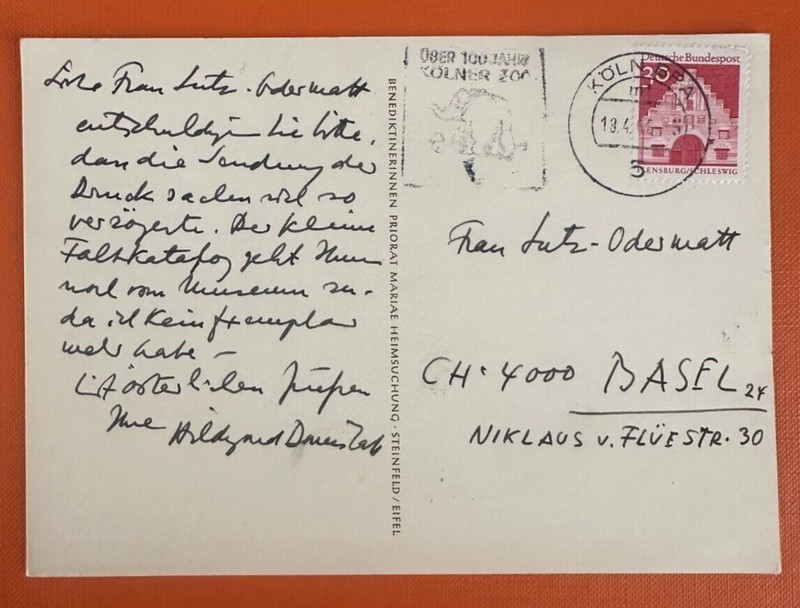 Liebe Frau Lutz-Odermatt
entschuldigen Sie bitte,
dass die Sendung der
Drucksachen sich so
verzögerte. Der kleine
Faltkatalog geht Ihnen
noch vom Museum zu-
da ich kein Exemplar
mehr habe –
Mit österlichen Grüßen
Ihre Hildegard Domizlaff
BENEDIKTINERINNEN PRIORAT MARIAE HEIMSUCHUNG · STEINFELD / EIFEL
ÜBER 100 JAHRE
KÖLNER ZOO
KÖLN
18.4.
Deutsche Bundespost
FLENSBURG/SCHLESWIG
Frau Lutz-Odermatt
CH-4000 BASEL 24
NIKLAUS v. FLÜESTR. 30